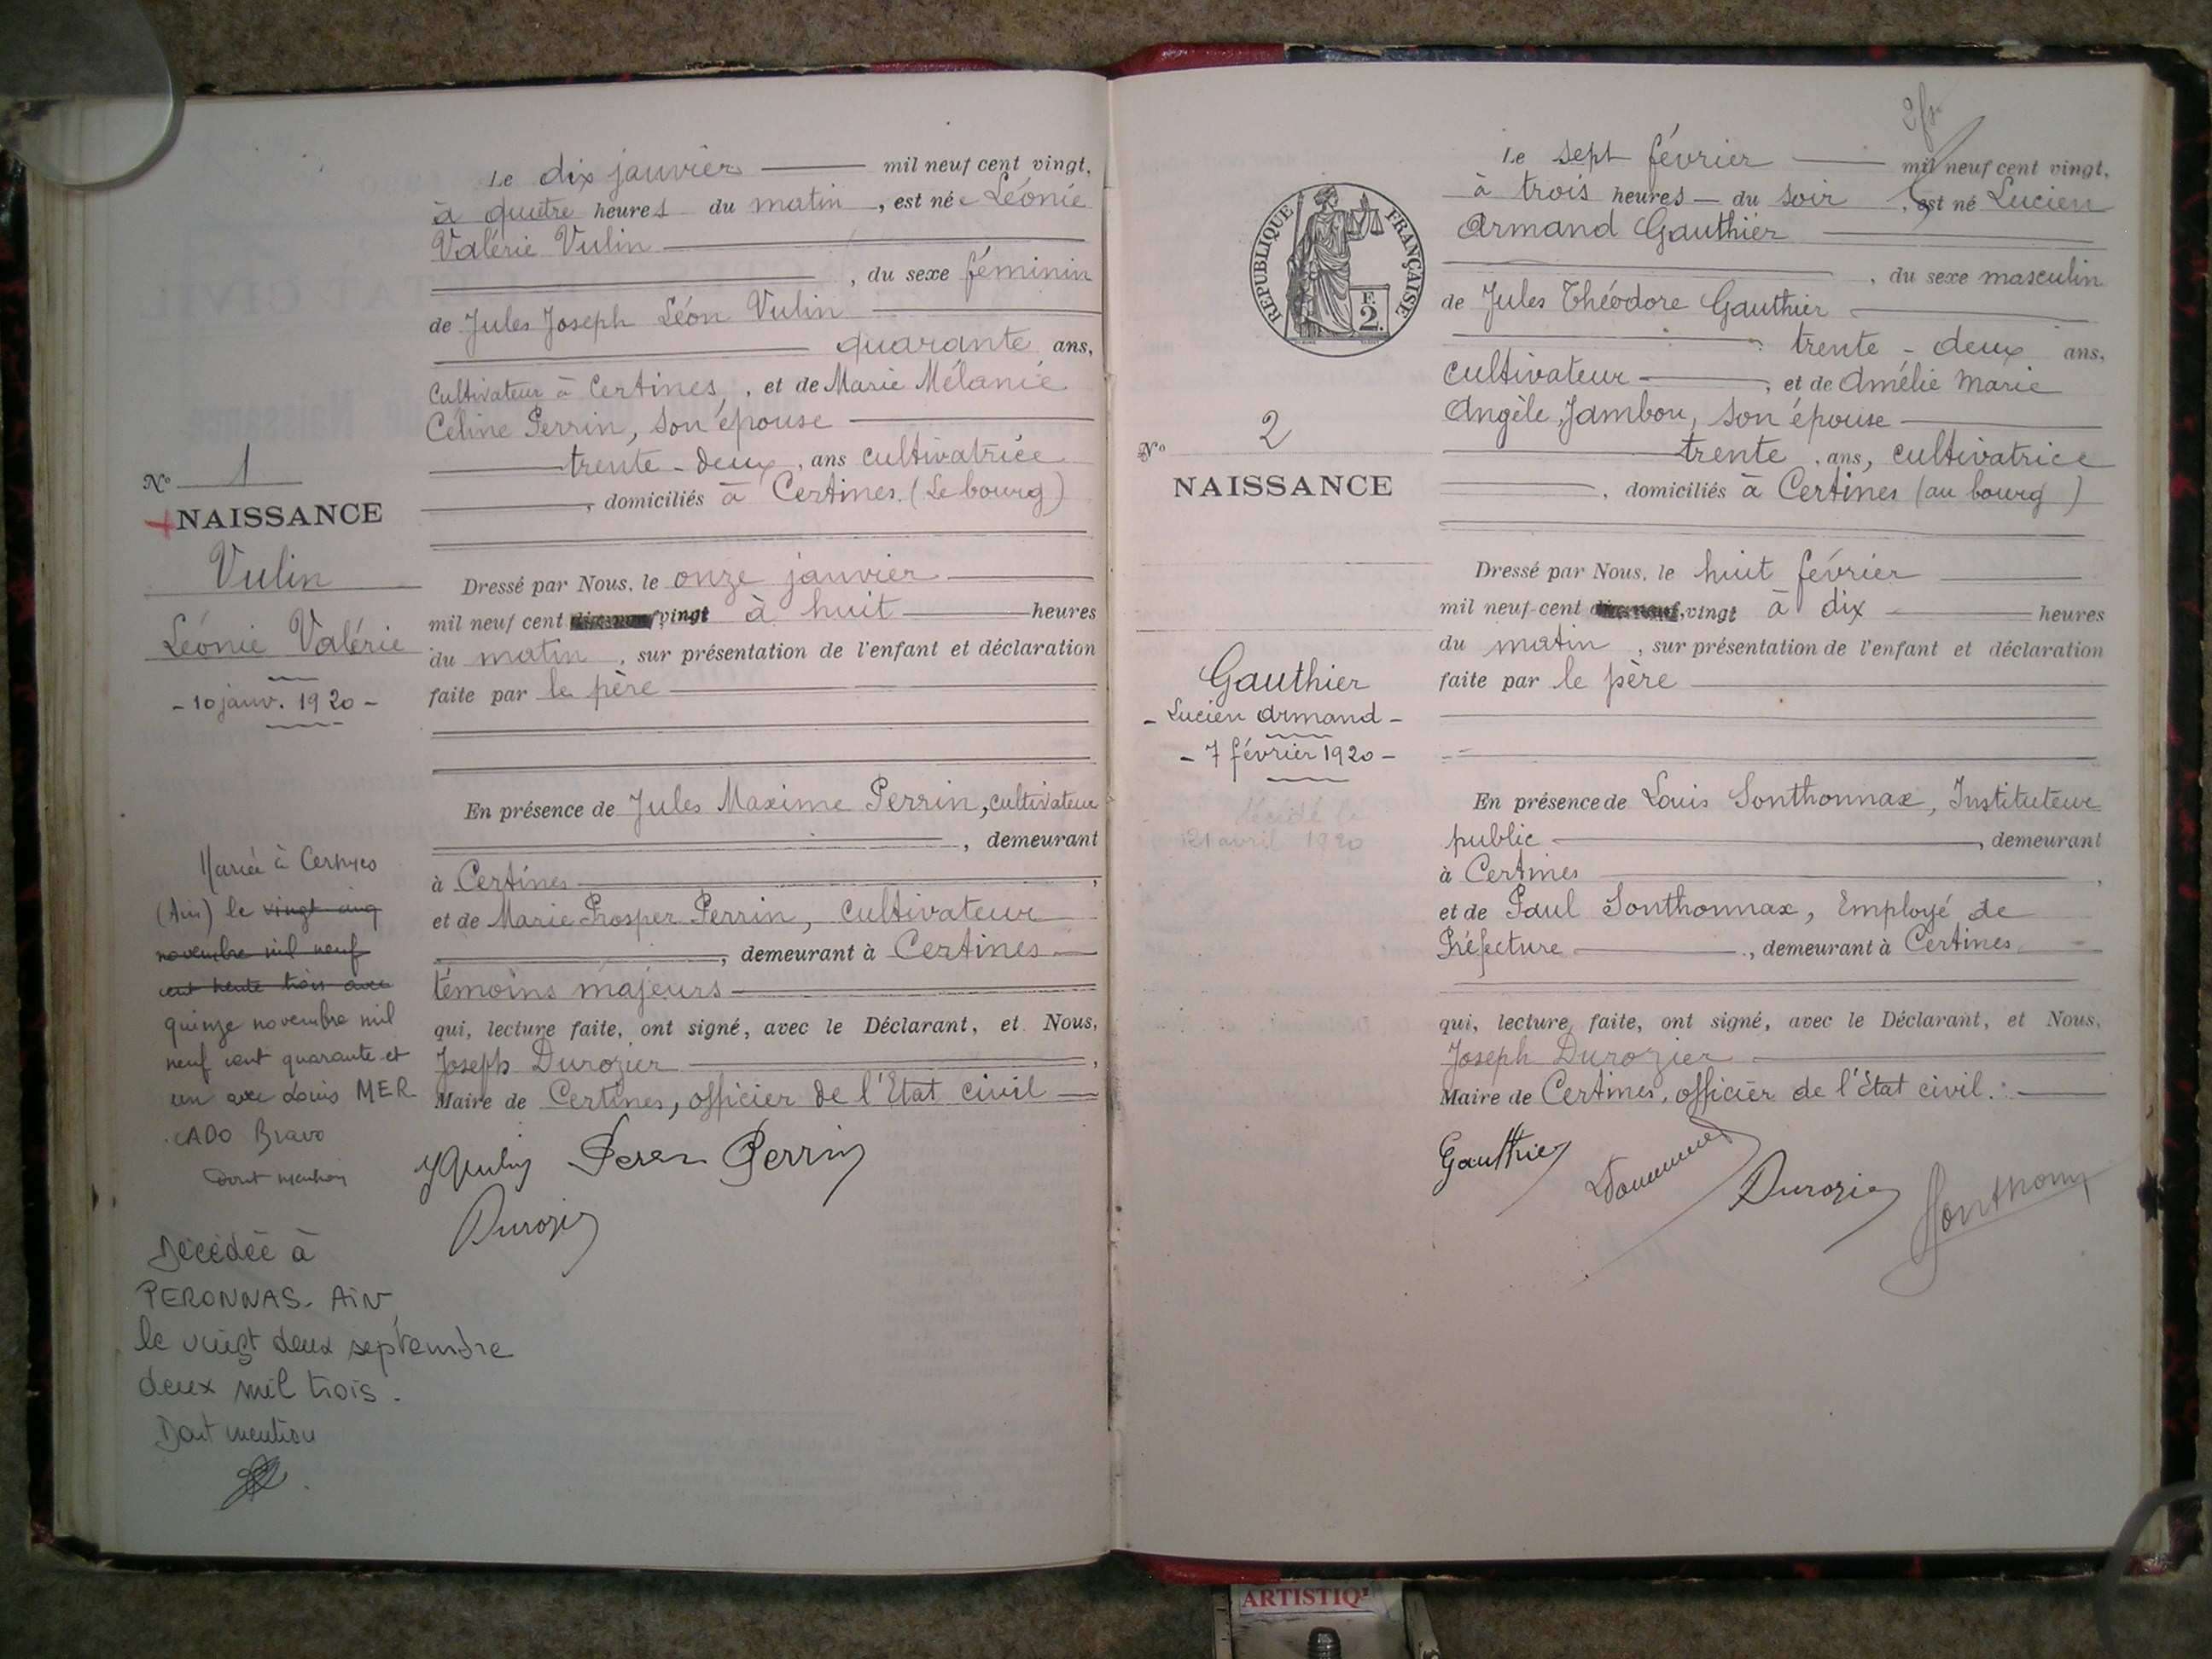 N° 1
NAISSANCE
Vulin
Léonie Valérie
- 10 janv. 1920 -
Mariée à Certines
(Ain) le vingt cinq
novembre mil neuf
cent trente trois avec
quinze novembre mil
neuf cent quarante et
un avec Louis MER
CADO Bravo
Dont mention
Décédée à
PERONNAS - AIN
le vingt deux septembre
deux mil trois.
Dont mention
Le dix janvier mil neuf cent vingt,
à quatre heures du matin, est née Léonie
Valérie Vulin
, du sexe féminin
de Jules Joseph Léon Vulin
quarante ans,
Cultivateur à Certines, et de Marie Mélanie
Céline Perrin, son épouse
trente-deux, ans cultivatrice
, domiciliés à Certines (Le bourg)
Dressé par Nous, le onze janvier
mil neuf cent dix-neuf vingt à huit heures
du matin, sur présentation de l'enfant et déclaration
faite par le père
En présence de Jules Maxime Perrin, cultivateur
, demeurant
à Certines,
et de Marie Prosper Perrin, cultivateur
, demeurant à Certines
témoins majeurs
qui, lecture faite, ont signé, avec le Déclarant, et Nous,
Joseph Durozier,
Maire de Certines, officier de l'Etat civil
Perrin
Durozier
2 fr
RÉPUBLIQUE FRANÇAISE
F.
2.
N° 2
NAISSANCE
Gauthier
- Lucien Armand -
- 7 février 1920 -
décédé le
21 avril 1920
Le sept février mil neuf cent vingt,
à trois heures - du soir, est né Lucien
Armand Gauthier
, du sexe masculin
de Jules Théodore Gauthier
trente-deux ans,
cultivateur, et de Amélie Marie
Angèle Jambon, son épouse
trente, ans, cultivatrice
, domiciliés à Certines (au bourg)
Dressé par Nous, le huit février
mil neuf cent dix-neuf, vingt à dix heures
du matin, sur présentation de l'enfant et déclaration
faite par le père
En présence de Louis Sonthonnax, Instituteur
public, demeurant
à Certines,
et de Paul Sonthonnax, Employé de
Préfecture, demeurant à Certines
qui, lecture faite, ont signé, avec le Déclarant, et Nous,
Joseph Durozier
Maire de Certines, officier de l'Etat civil.
Gauthier
Durozier
Sonthonn
ARTISTIQ